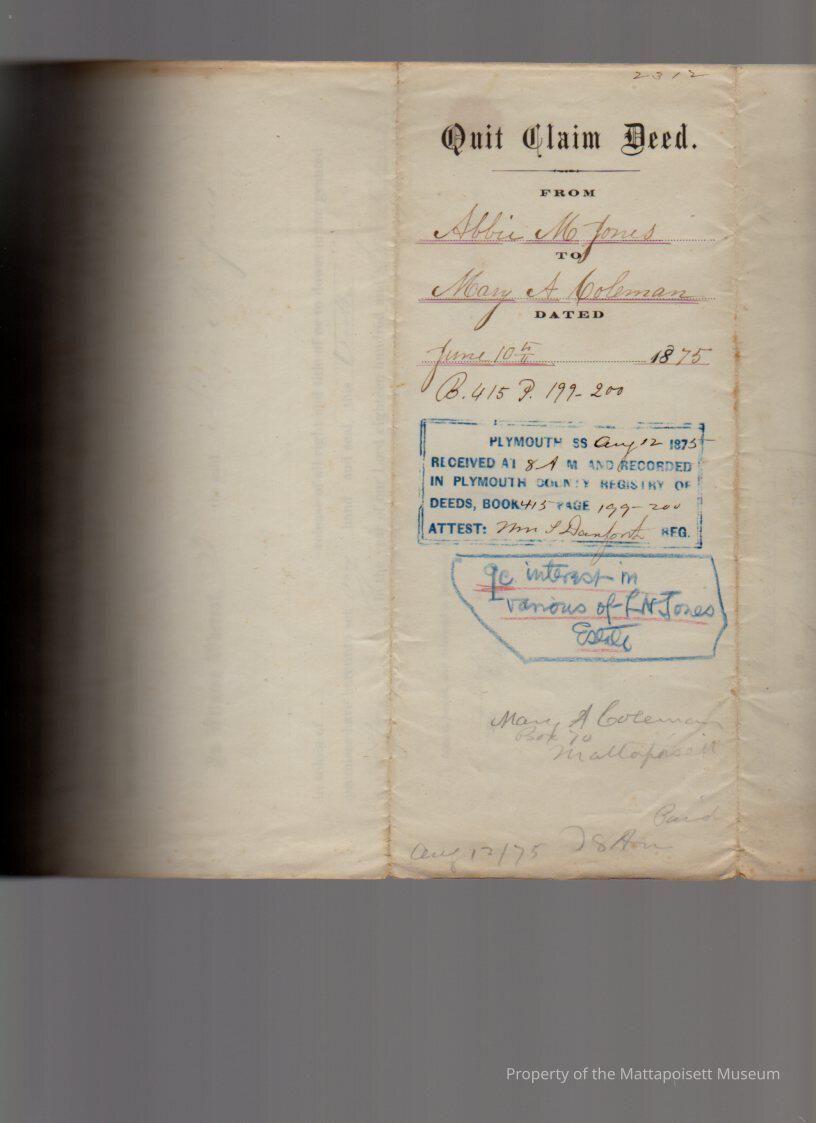 2312
Quit Claim Deed.
FROM
Abbie M Jones
TO
Mary A Coleman
DATED
June 10th 1875
B. 415 P. 199-200
PLYMOUTH SS Aug 12 1875
RECEIVED AT 8 A M AND RECORDED
IN PLYMOUTH COUNTY REGISTRY OF
DEEDS, BOOK 415 PAGE 199-200
ATTEST: Wm S Danforth REG.
qc interest in
various of L N Jones
Estate
Mary A Coleman
Box 70
Mattapoisett
Paid
Aug 12/75 8 Am
Property of the Mattapoisett Museum